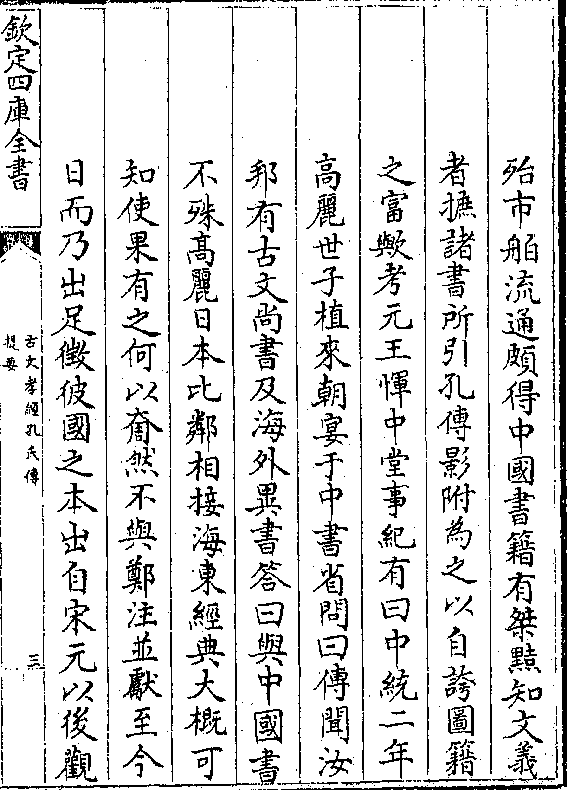 殆市舶流通頗得中國書籍有桀黠知文義
者摭諸書所引孔傳影附為之以自誇圖籍
之富歟考元王惲中堂事紀有曰中統二年
高麗世子植來朝宴于中書省問曰傳聞汝
邦有古文尚書及海外異書答曰與中國書
不殊高麗日本比鄰相接海東經典大概可
知使果有之何以奝然不與鄭注並獻至今
日而乃出足徵彼國之本出自宋元以後觀
欽定四庫全書
古文孝經孔氏傳
提要
三